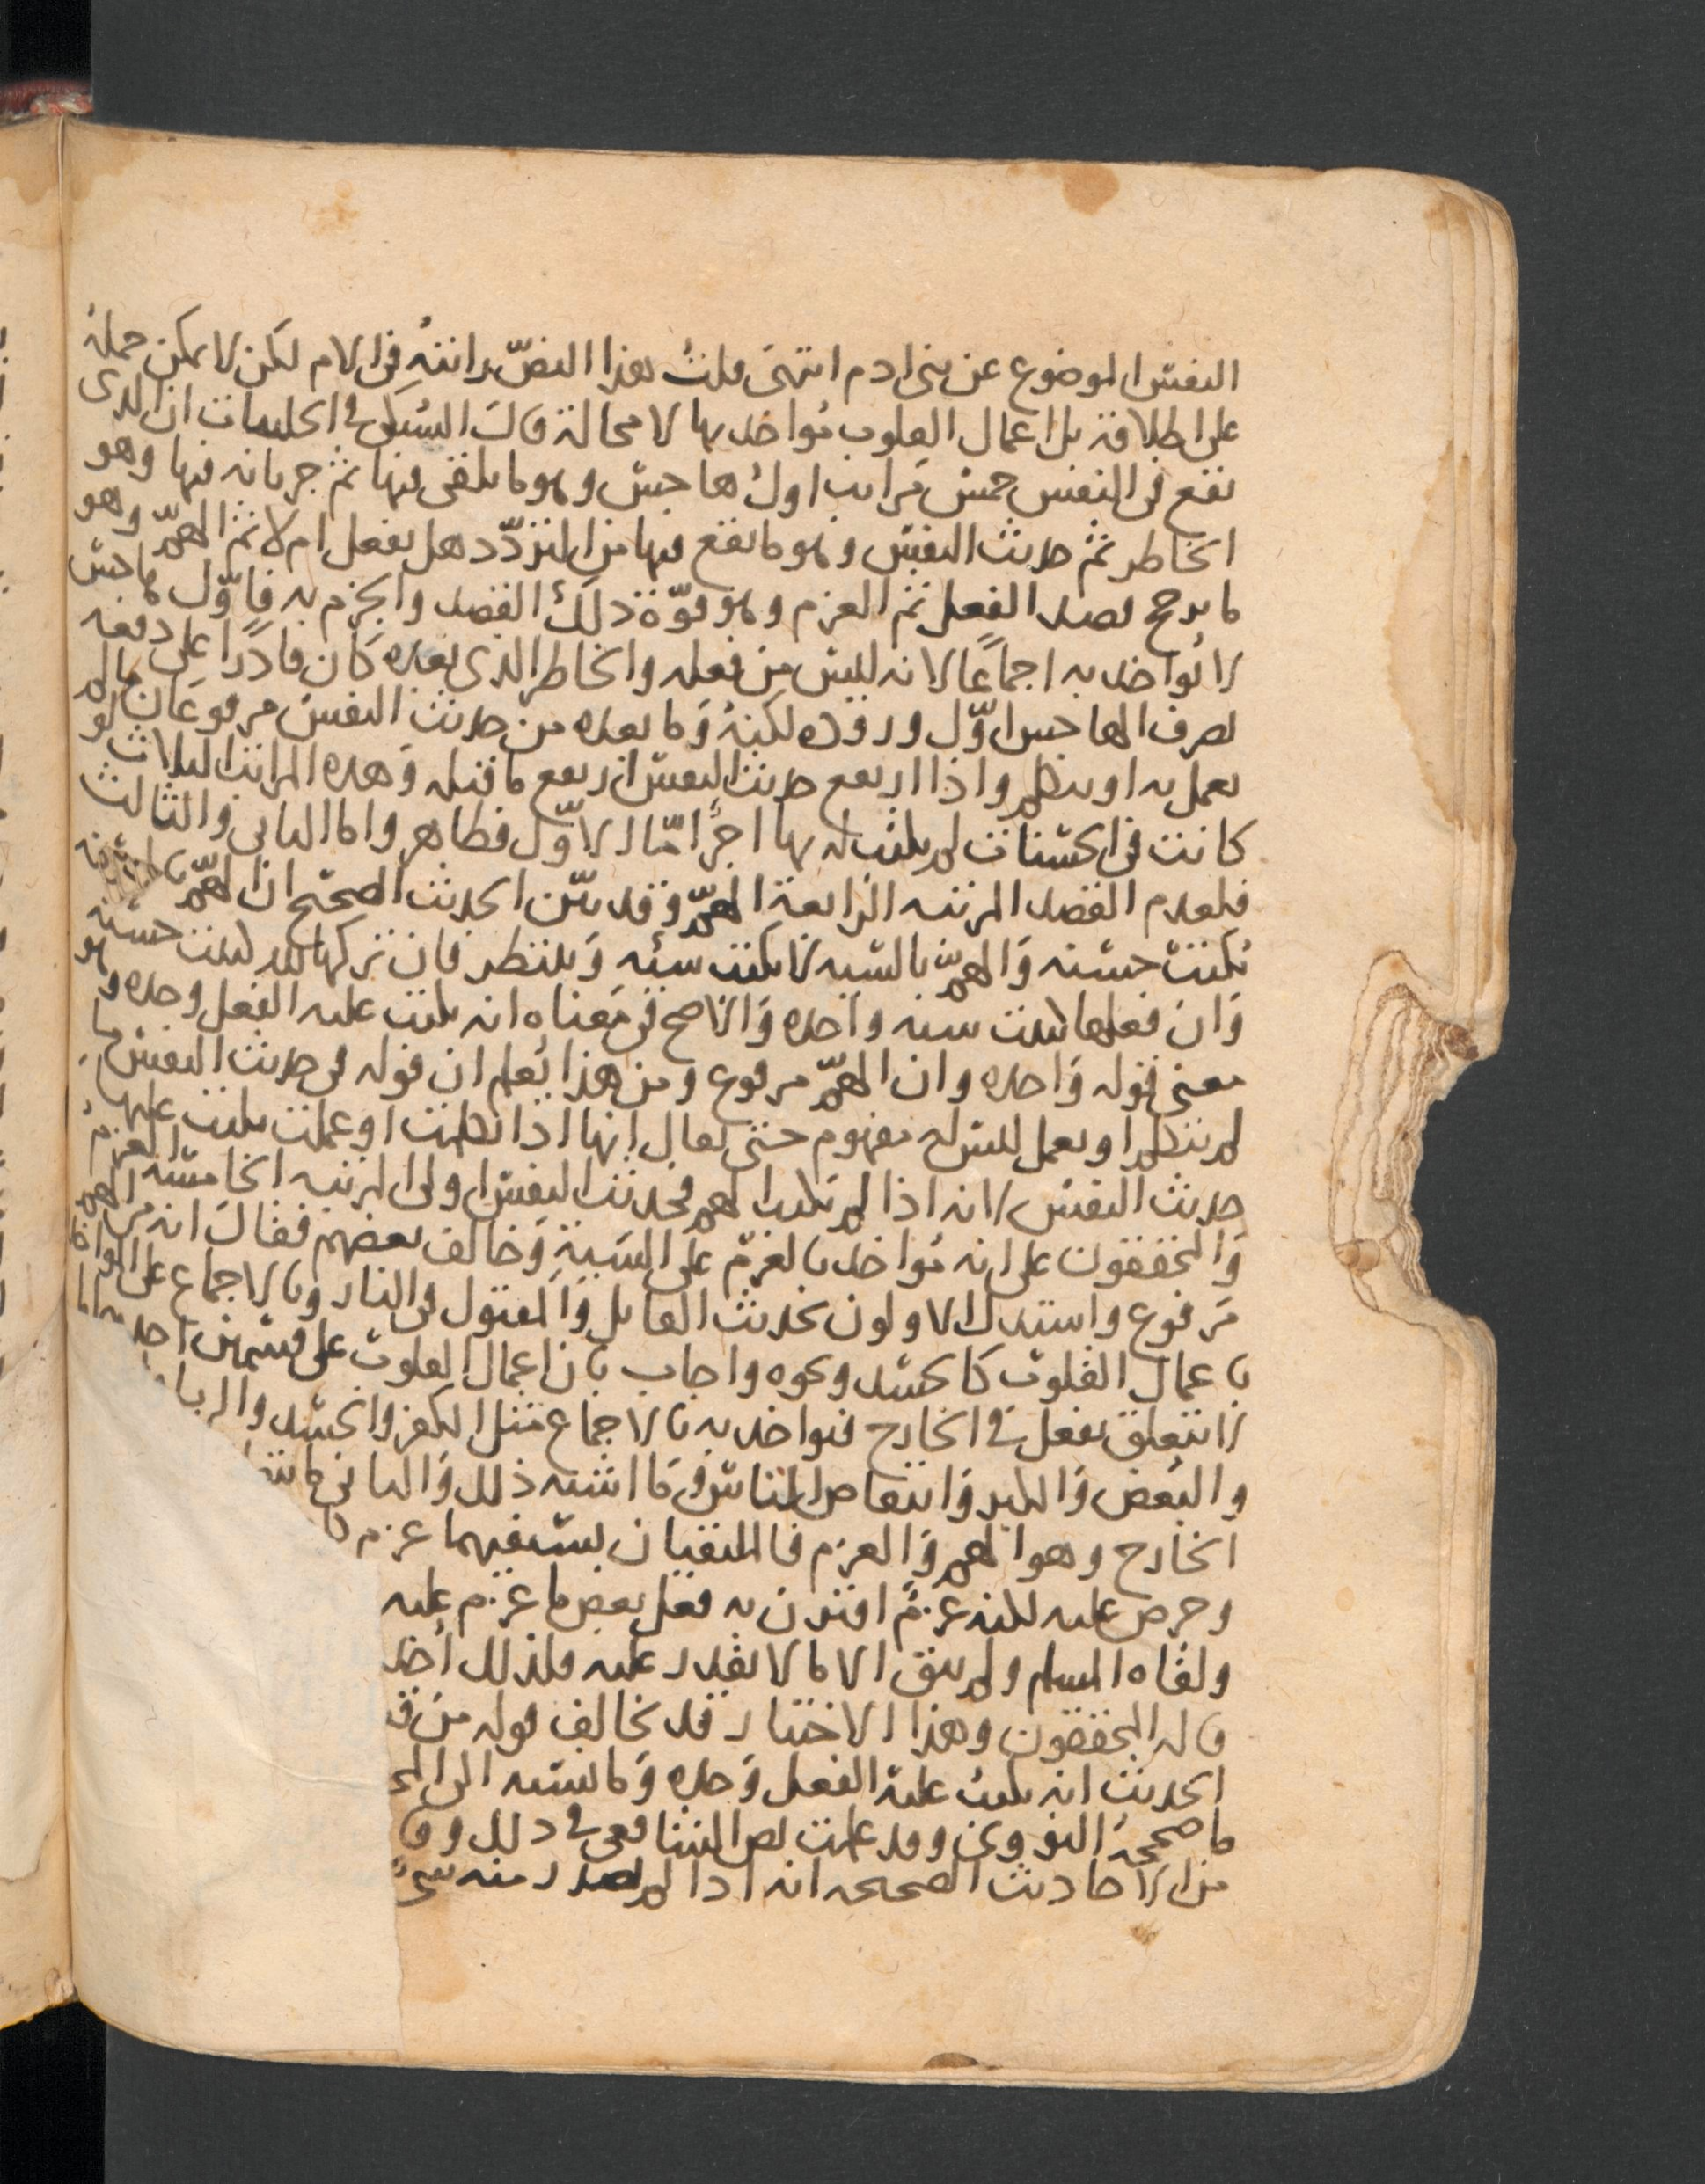 النفس الموضوع عن بني ادم انتهى قلت هذا النص رايته في الام لكن لا يمكن حمله
على اطلاقه بل اعمال القلوب مواخذ بها لا محالة قال السبكي في الحلبيات ان الذي
يقع في النفس خمس مراتب اول هاجس وهو ما يلقى فيها ثم جريانه فيها وهو
الخاطر ثم حديث النفس وهو ما يقع فيها من التردد هل يفعل ام لا ثم الهم وهو
ما يرجح قصد الفعل ثم العزم وهو قوة ذلك القصد والجزم به فاول هاجس
لا يواخذ به اجماعا لانه ليس من فعله والخاطر الذي بعده كان قادرا على دفعه
بصرف الهاجس اول وروده لكنه وما بعده من حديث النفس مرفوعان ما لم
يعمل به او يتكلم واذا ارتفع حديث النفس ارتفع ما قبله وهذه المراتب الثلاث لو
كانت في الحسنات لم يكتب له بها اجر اما الاول فظاهر واما الثاني والثالث
فلعدم القصد المرتبه الرابعة الهم وقد بين الحديث الصحيح ان الهم بالحسنة
يكتب حسنه والهم بالسيه لا يكتب سيئه وينتظر فان تركها لله كتبت حسنه
وان فعلها كتبت سيه واحده والاصح في معناه انه يكتب عليه الفعل وحده وهو
معنى قوله واحده وان الهم مرفوع ومن هذا يعلم ان قوله في حديث النفس ما
لم يتكلم او يعمل ليس له مفهوم حتى يقال انها اذا تكلمت او عملت يكتب عليها
حديث النفس لانه اذا لم يكتب الهم فحديث النفس اولى المرتبه الخامسه العزم
والمحققون على انه مواخذ بالعزم على السية وخالف بعضهم فقال انه من الهم
مرفوع واستدل الاولون بحديث القاتل والمقتول في النار وبالاجماع على المواخذة
باعمال القلوب كالحسد ونحوه واجاب بان اعمال القلوب على قسمين احدها ما
لا يتعلق بفعل في الخارج فيواخذ به بالاجماع مثل الكفر والحسد والريا
والبغض والكبر وانتقاص الناس وما اشبه ذلك والثاني ما يتعلق
الخارج وهو الهم والعزم فالملتقيان بسيفيهما عزم
وحرص عليه لكنه عزم اقترن به فعل بعض ما عزم عليه
ولقاه المسلم ولم يبق الا ما لا يقدر عليه فلذلك أخذ
قاله المحققون وهذا الاختيار قد يخالف قوله من ق
الحديث انه يكتب عليه الفعل وحده وما نسبه الى الم
ما صححه النووي وقد علمت نص الشافعي في ذلك وق
من الاحاديث الصحيحه انه اذا لم يصدر منه شيء